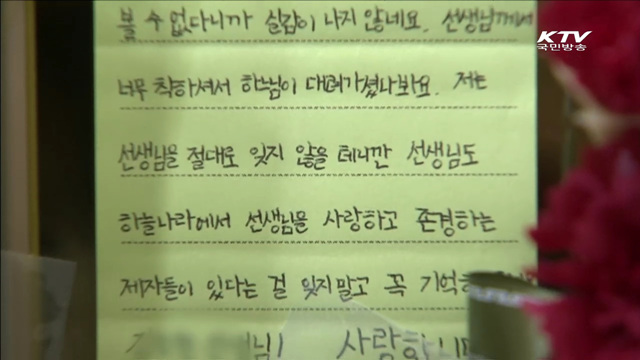 볼 수 없다니까 실감이 나지 않네요. 선생님께서
너무 착하셔서 하느님이 데려가셨나봐요. 저는
선생님을 절대로 잊지 않을 테니깐 선생님도
하늘나라에서 선생님을 사랑하고 존경하는
제자들이 있다는 걸 잊지말고 꼭
사랑합니다
KTV
국민방송